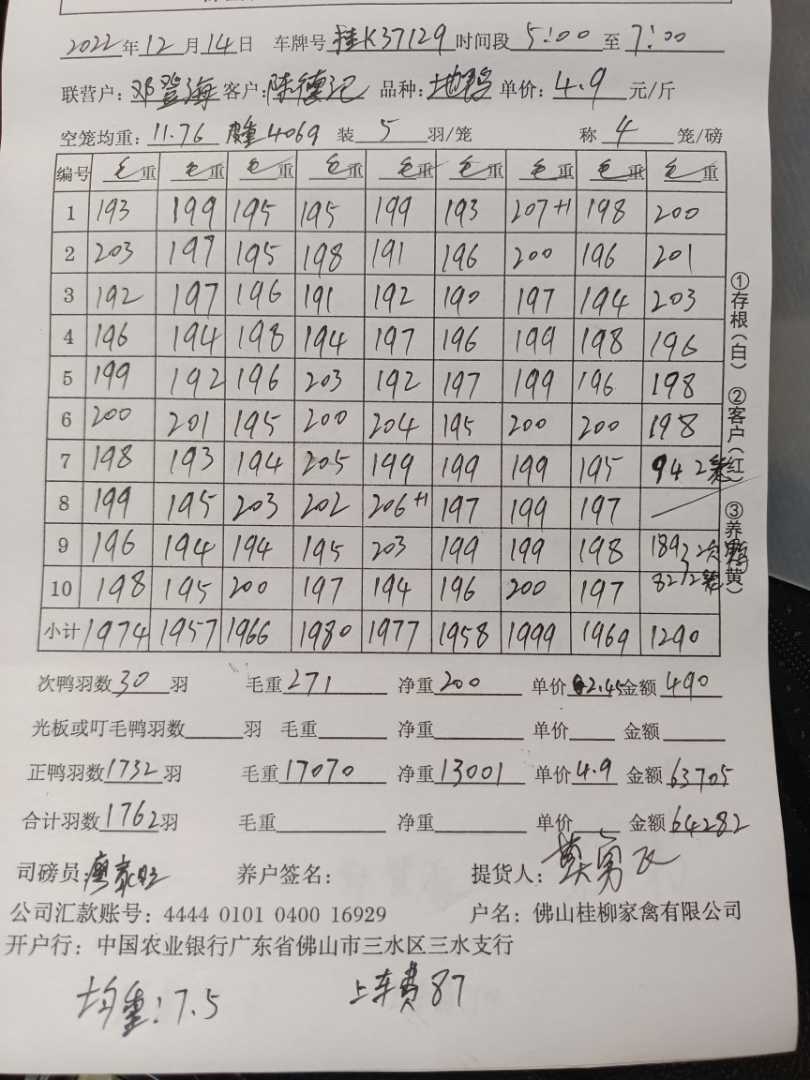 2022年12月14日 车牌号 桂K37129 时间段 5:00 至 7:00
联营户:邓登海 客户:陈德记 品种:地鸭 单价:4.9 元/斤
空笼均重:11.76 皮重4069 装 5 羽/笼 称 4 笼/磅
编号 毛重 毛重 毛重 毛重 毛重 毛重 毛重 毛重 毛重
1 193 199 195 195 199 193 207+1 198 200
2 203 197 195 198 191 196 200 196 201
3 192 197 196 191 192 190 197 194 203
4 196 194 198 194 197 196 199 198 196
5 199 192 196 203 192 197 199 196 198
6 200 201 195 200 204 195 200 200 198
7 198 193 194 205 199 199 199 195 94 2笼
8 199 195 203 202 206+1 197 199 197
9 196 194 194 195 203 199 199 198 189 次鸭
10 198 195 200 197 194 196 200 197 82 2笼
小计 1974 1957 1966 1980 1977 1958 1999 1969 1290
次鸭羽数 30 羽 毛重 271 净重 200 单价 2.45 金额 490
光板或叮毛鸭羽数 羽 毛重 净重 单价 金额
正鸭羽数 1732 羽 毛重 17070 净重 13001 单价 4.9 金额 63705
合计羽数 1762 羽 毛重 净重 单价 金额 64282
司磅员: 养户签名: 提货人:
公司汇款账号:4444 0101 0400 16929 户名:佛山桂柳家禽有限公司
开户行:中国农业银行广东省佛山市三水区三水支行
均重:7.5 上车费 87
①存根(白) ②客户(红) ③养户(黄)